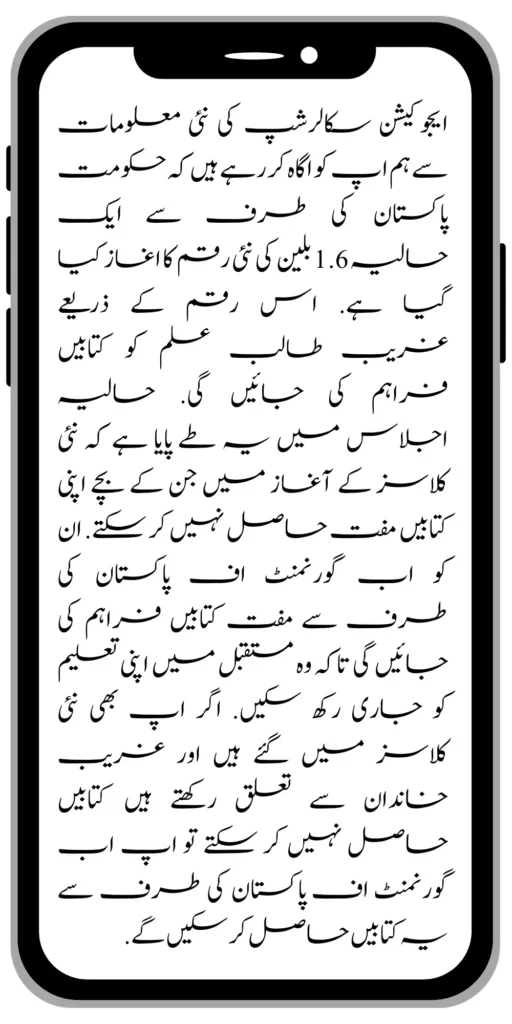 ایجوکیشن سکالرشپ کی نئی معلومات
سے ہم اپ کو اگاہ کر رہے ہیں کہ حکومت
پاکستان کی طرف سے ایک
حالیہ 1.6 بلین کی نئی رقم کا اغاز کیا
گیا ہے. اس رقم کے ذریعے
غریب طالب علم کو کتابیں
فراہم کی جائیں گی. حالیہ
اجلاس میں یہ طے پایا ہے کہ نئی
کلاسز کے آغاز میں جن کے بچے اپنی
کتابیں مفت حاصل نہیں کر سکتے. ان
کو اب گورنمنٹ اف پاکستان کی
طرف سے مفت کتابیں فراہم کی
جائیں گی تاکہ وہ مستقبل میں اپنی تعلیم
کو جاری رکھ سکیں. اگر اپ بھی نئی
کلاسز میں گئے ہیں اور غریب
خاندان سے تعلق رکھتے ہیں کتابیں
حاصل نہیں کر سکتے تو اپ اب
گورنمنٹ اف پاکستان کی طرف سے
یہ کتابیں حاصل کر سکیں گے.